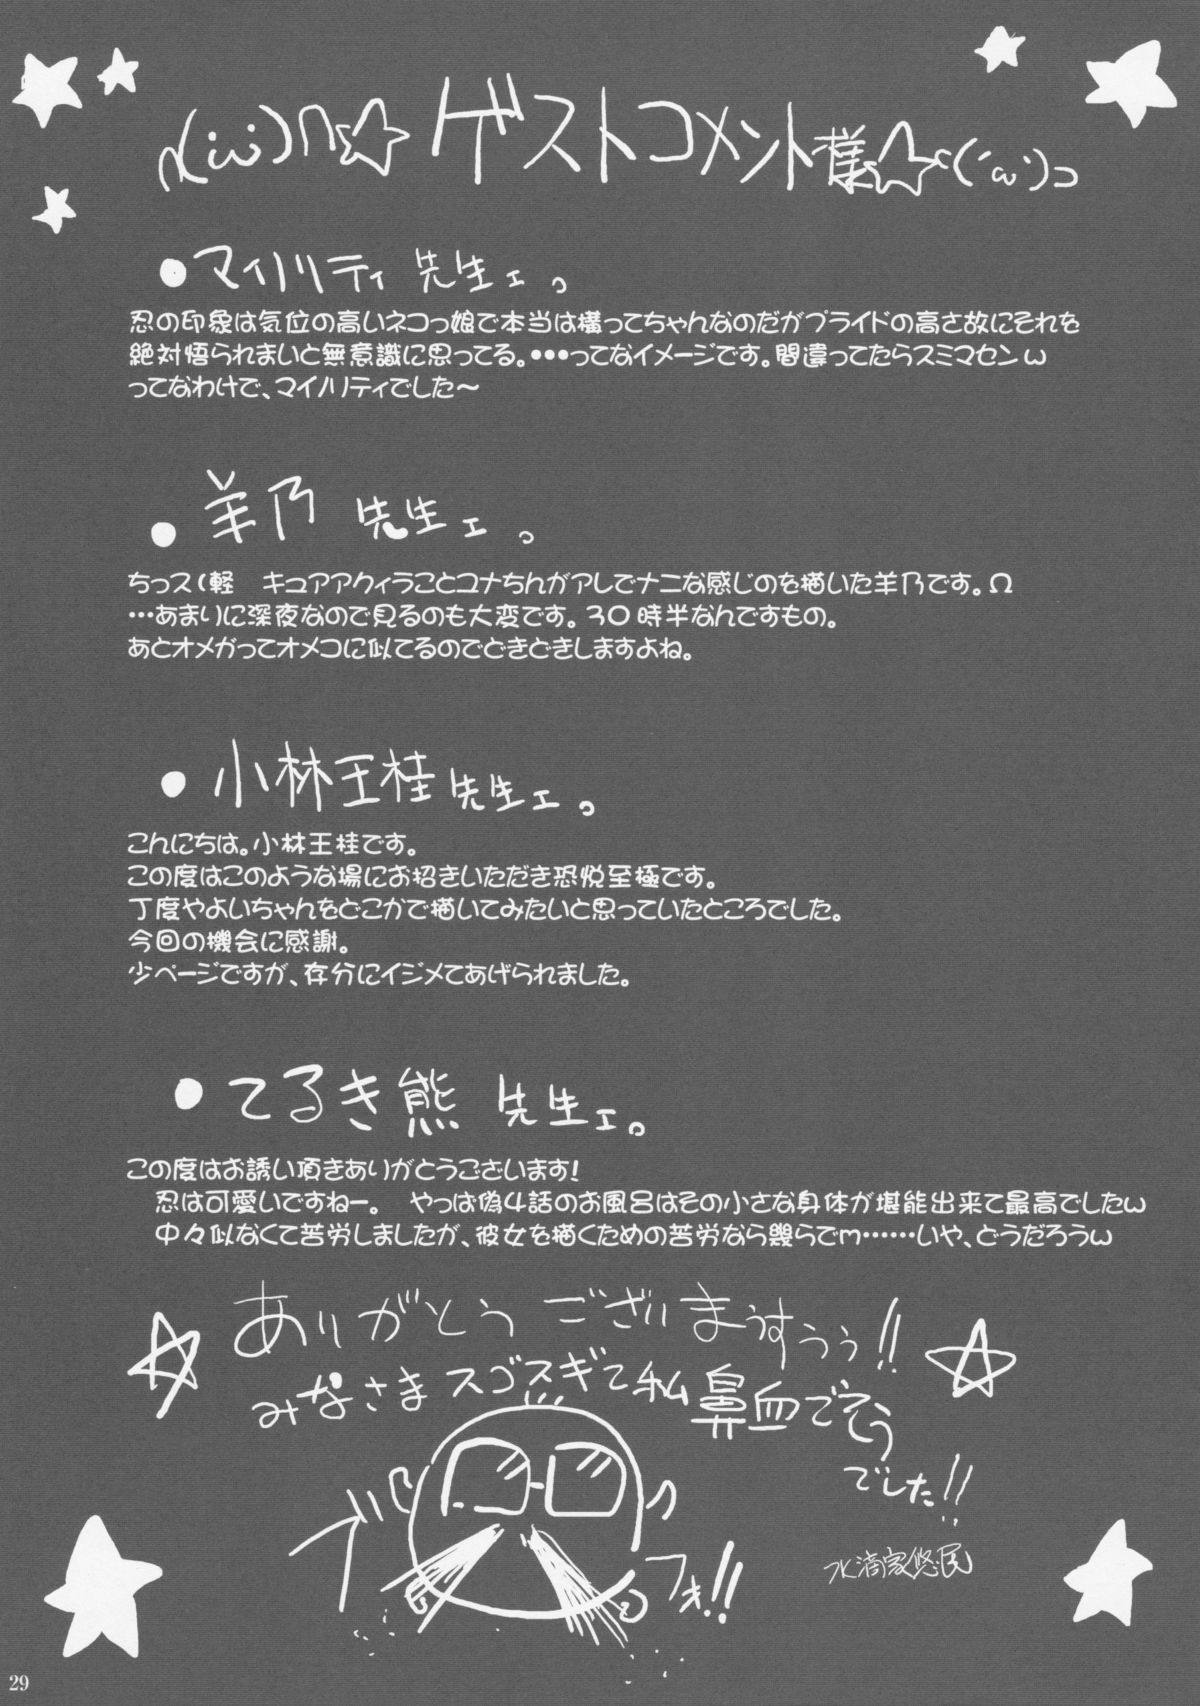 ∩(ω)∩☆ ゲストコメント様☆⊂(´ω`)⊃
●マイノリティ 先生ェっ
忍の印象は気位の高いネコっ娘で本当は構ってちゃんなのだがプライドの高さ故にそれを
絶対悟られまいと無意識に思ってる。・・・ってなイメージです。間違ってたらスミマセンω
ってなわけで、マイノリティでした～
●羊乃 先生ェっ
ちっス(軽　キュアアクィラことユナちんがアレでナニな感じのを描いた羊乃です。Ω
…あまりに深夜なので見るのも大変です。30時半なんですもの。
あとオメガってオメコに似てるのでどきどきしますよね。
●小林王桂 先生ェっ。
こんにちは。小林王桂です。
この度はこのような場にお招きいただき恐悦至極です。
丁度やよいちゃんをどこかで描いてみたいと思っていたところでした。
今回の機会に感謝。
少ページですが、存分にイジメてあげられました。
●てるき熊 先生ェ。
この度はお誘い頂きありがとうございます!
忍は可愛いですねー。　やっぱ偽4話のお風呂はその小さな身体が堪能出来て最高でしたω
中々似なくて苦労しましたが、彼女を描くための苦労なら幾らでm……いや、どうだろうω
ありがとうございまぅすぅぅ!!
みなさまスゴスギて私鼻血でそう
でした!!
ブ
フォ!!
水滴家悠民
29